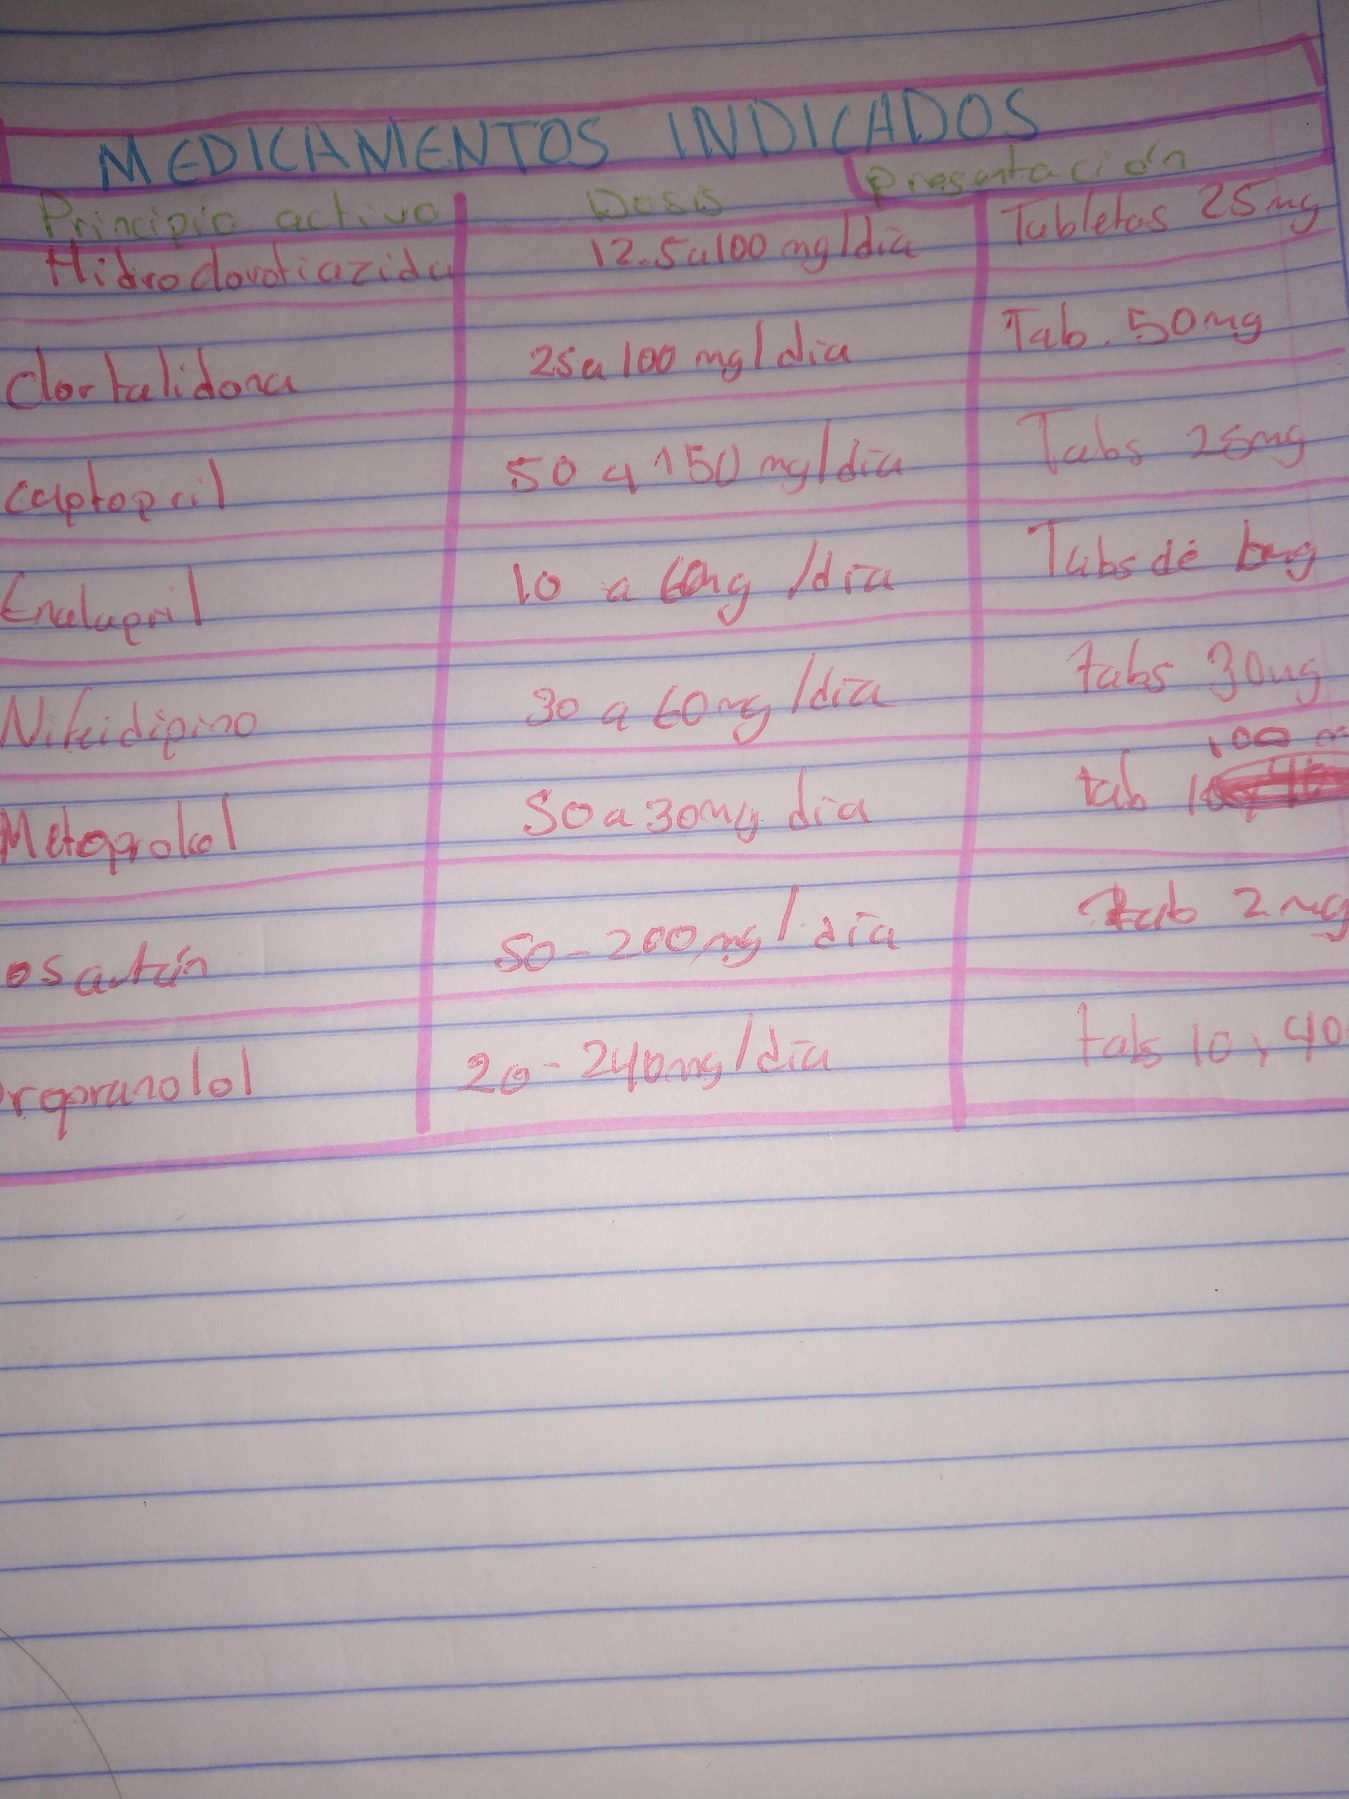 MEDICAMENTOS INDICADOS
Principio activo Dosis Presentación
Hidroclorotiazida 12.5a100 mg/día Tabletas 25mg
Clortalidona 25a100 mg/día Tab. 50mg
Captopril 50 a 150 mg/día Tabs 25mg
Enalapril 10 a 60mg /día Tabs de
Nifeidipino 30 a 60mg /día tabs 30mg
Metoprolol 50a30mg día tab 100 m
osartán 50-200mg/día tab 2mg
ropranolol 20-240mg/día tabs 10 y 40